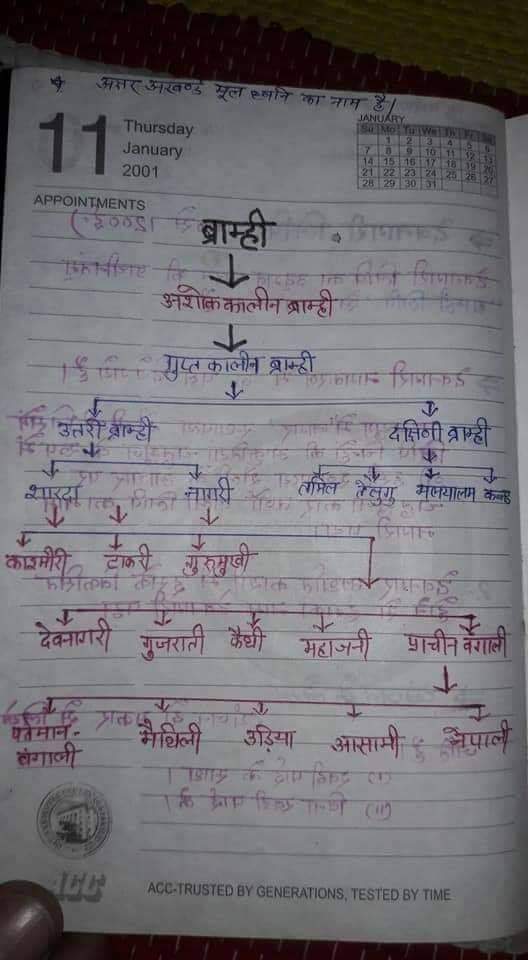 अक्षर अखण्ड मूल ध्वनि का नाम है।
11
Thursday
January
2001
JANUARY
Su Mo Tu We Th Fr Sa
1 2 3 4 5 6
7 8 9 10 11 12 13
14 15 16 17 18 19 20
21 22 23 24 25 26 27
28 29 30 31
APPOINTMENTS
ब्राम्ही
अशोक कालीन ब्राम्ही
गुप्त कालीन ब्राम्ही
उत्तरी ब्राम्ही दक्षिणी ब्राम्ही
शारदा नागरी तमिल तेलुगु मलयालम कन्नड
काश्मीरी टाकरी गुरुमुखी
देवनागरी गुजराती कैथी महाजनी प्राचीन बंगाली
वर्तमान- मैथिली उड़िया आसामी नेपाली
बंगाली
ACC
ACC-TRUSTED BY GENERATIONS, TESTED BY TIME